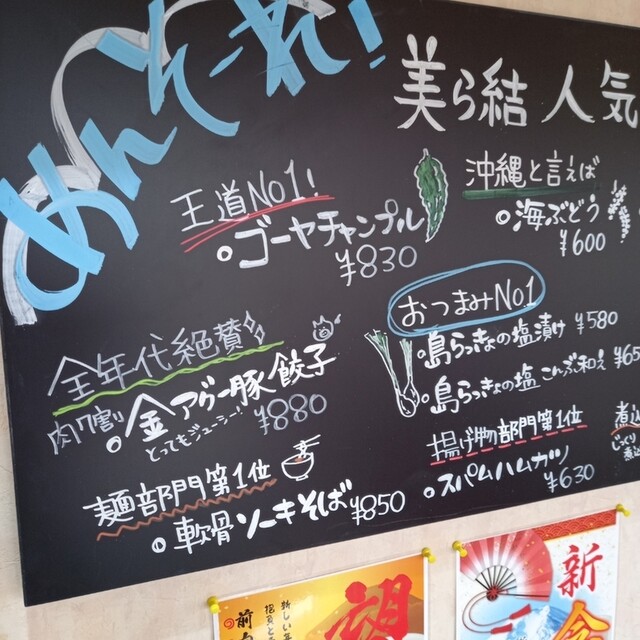 めんそーれ!
美ら結 人気
王道No1!
ゴーヤチャンプル
¥830
沖縄と言えば
海ぶどう
¥600
全年代絶賛
肉7割
金アグー豚餃子
とってもジューシー!
¥880
おつまみNo.1
島らっきょの塩漬け ¥580
島らっきょの塩こんぶ和え ¥65
麺部門第1位
軟骨ソーキそば ¥850
揚げ物部門第1位
スパムハムカツ
¥630
煮込
じっくり
煮込
新しい年
前
新
念